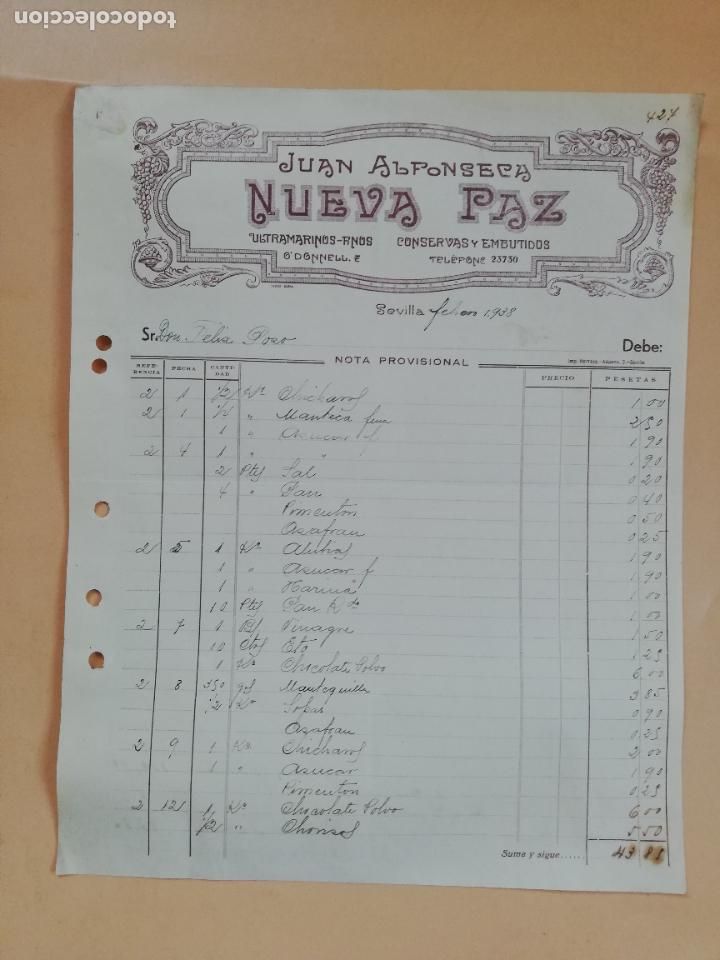 todocoleccion
427
JUAN ALFONSECA
NUEVA PAZ
ULTRAMARINOS-FINOS CONSERVAS Y EMBUTIDOS
O'DONNELL. 2 TELÉFONO 23730
Sevilla 1.938
Sr. Don Felix Pozo Debe:
NOTA PROVISIONAL
REFERENCIA FECHA CANTIDAD PRECIO PESETAS
2 1 1/2 Kº Chicharos 1 00
2 1 1/4 " Manteca fina 2 50
1 " Azucar f 1 90
2 4 1 " " 1 90
2 Ptes Sal 0 20
4 " Pan 0 40
Pimenton 0 50
Azafran 0 25
2 5 1 Kº Alubias 1 90
1 " Azucar f 1 90
1 " Harina 1 00
10 Ptes Pan 1 00
2 7 1 Vinagre 1 50
10 1 25
1 Kº Chicolate Polvo 6 00
2 8 350 gs Mantequilla 3 85
1/2 Kº Sopas 0 90
Azafran 0 25
2 9 1 Kº Chicharos 2 00
1 " Azucar 1 90
Pimenton 0 25
2 12 1 Kº Chocolate Polvo 6 00
1/2 " Chorisos 5 50
Suma y sigue...... 43 85